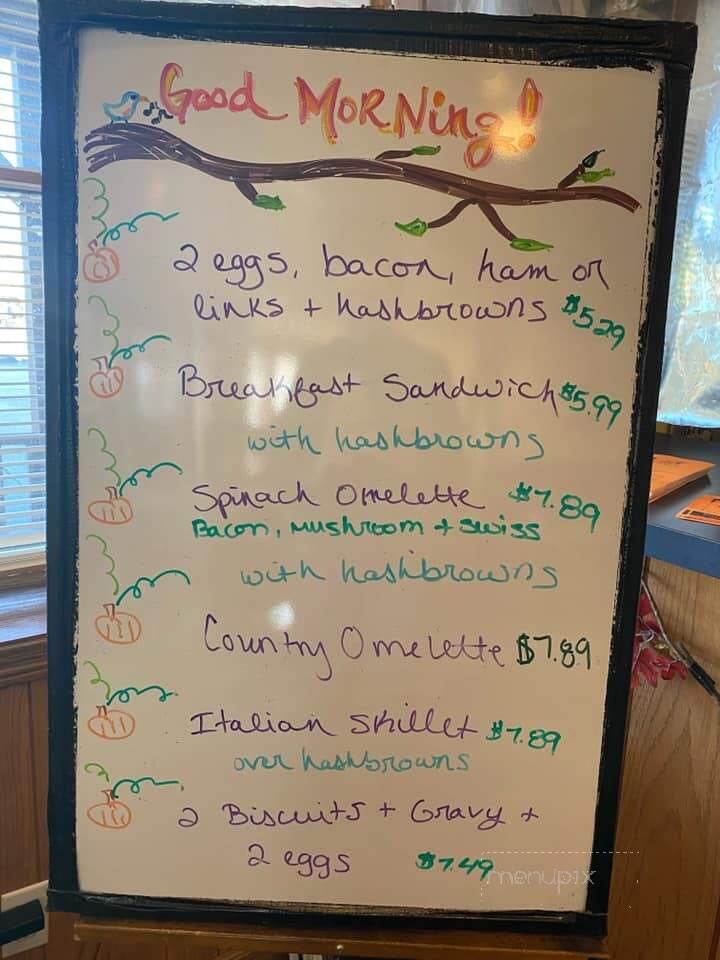 Good Morning!
2 eggs, bacon, ham or
links + hashbrowns $5.29
Breakfast Sandwich $5.99
with hashbrowns
Spinach Omelette $7.89
Bacon, Mushroom + Swiss
with hashbrowns
Country Omelette $7.89
Italian Skillet $7.89
over hashbrowns
2 Biscuits + Gravy +
2 eggs $7.49
menupix